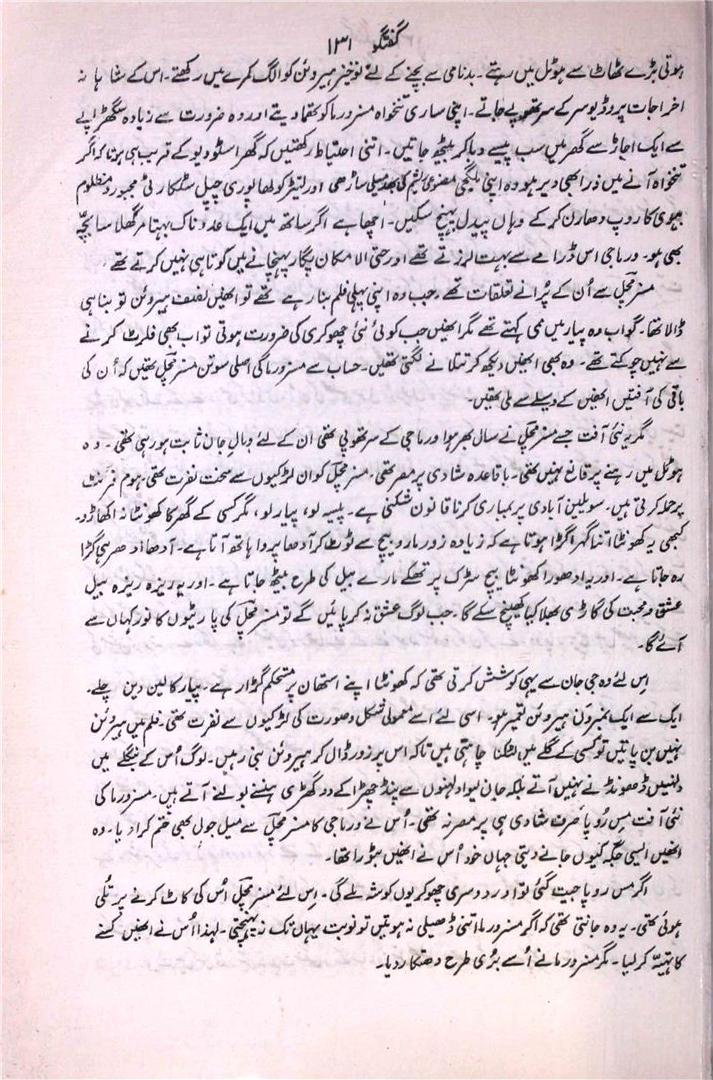 گفتگو ۱۳۱
ہوتی بڑے ٹھاٹ سے ہوٹل میں رہتے۔ بدنامی سے بچنے کے لئے نوخیز ہیروئن کو الگ کمرے میں رکھتے۔ اس کے شاہانہ
اخراجات پروڈیوسر کے سر تھوپے جاتے۔ اپنی ساری تنخواہ مسز ورما کو تھما دیتے اور وہ ضرورت سے زیادہ سگھڑاپے
سے ایک اجاڑ سے گھر میں سب پیسے دبا کر بیٹھ جاتیں۔ اتنی احتیاط رکھتیں کہ گھر اسٹوڈیو کے قریب ہی ہوتا کہ اگر
تنخواہ آنے میں ذرا بھی دیر ہو وہ اپنی ملگجی مصنوعی ریشم کی میلی ساڑھی اور لیتڑ کولھا پوری چپل سٹکارتی مجبور و مظلوم
بیوی کا روپ دھارن کر کے وہاں پیدل پہنچ سکیں۔ اچھا ہے اگر ساتھ میں ایک عدد ناک بہتا مرگھلا سا بچّہ
بھی ہو۔ ورما جی اس ڈرامے سے بہت لرزتے تھے اور حتی الامکان پگار پہچانے میں کوتاہی نہیں کرتے تھے
مسز مچّل سے اُن کے پرانے تعلقات تھے۔ جب وہ اپنی پہلی فلم بنا رہے تھے تو انھیں نصف ہیروئن تو بنا ہی
ڈالا تھا۔ گو اب وہ پیار میں ممی کہتے تھے مگر انھیں جب کوئی نئی چھوکری کی ضرورت ہوتی تو اب بھی فلرٹ کرنے
سے نہیں چوکتے تھے۔ وہ بھی انھیں دیکھ کر تتلانے لگتی تھیں۔ حساب سے مسز ورما کی اصلی سوتن مسز مچّل تھیں کہ اُن کی
باقی کی آفتیں انھیں کے وسیلے سے ملی تھیں۔
مگر یہ نئی آفت جسے مسز مچّل نے سال بھر ہوا ورما جی کے سر تھوپی تھی ان کے لئے وبالِ جان ثابت ہو رہی تھی۔ وہ
ہوٹل میں رہنے پر قانع نہیں تھی۔ باقاعدہ شادی پر مصر تھی۔ مسز مچّل کو ان لڑکیوں سے سخت نفرت تھی ہوم فرنٹ
پر حملہ کرتی ہیں۔ سویلین آبادی پر بمباری کرنا قانون شکنی ہے۔ پیسہ لو، پیار لو، مگر کسی کے گھر کا کھونٹا نہ اکھاڑو۔
کبھی یہ کھونٹا اتنا گہرا گڑا ہوتا ہے کہ زیادہ زور مارو بیچ سے ٹوٹ کر آدھا پردا ہاتھ آتا ہے۔ آدھا ادھر ہی گڑا
رہ جاتا ہے۔ اور یہ ادھورا کھونٹا بیچ سڑک پر تھکے مارے بیل کی طرح بیٹھ جاتا ہے۔ اور یہ ریزہ ریزہ بیل
عشق و محبت کی گاڑی بھلا کیا کھینچ سکے گا۔ جب لوگ عشق نہ کر پائیں گے تو مسز مچّل کی پارٹیوں کا نور کہاں سے
آئے گا۔
اِس لئے وہ جی جان سے یہی کوشش کرتی تھی کہ کھونٹا اپنے استھان پر مستحکم گڑا رہے۔ پیار کا لین دین چلے۔
ایک سے ایک نمبر ون ہیروئن تعمیر ہو۔ اسی لئے اسے معمولی شکل و صورت کی لڑکیوں سے نفرت تھی۔ فلم میں ہیروئن
نہیں بن پاتیں تو کسی کے گلے میں لٹکنا چاہتی ہیں تاکہ اس پر زور ڈال کر ہیروئن بنی رہیں۔ لوگ اُس کے بنگلے میں
دلہنیں ڈھونڈنے نہیں آتے بلکہ جان لیوا دلہنوں سے پنڈ چھڑا کے دو گھڑی ہنسنے بولنے آتے ہیں۔ مسز ورما کی
نئی آفت مس رُوپا صرف شادی ہی پر مصر نہ تھی۔ اُس نے ورما جی کا مسز مچّل سے میل جول بھی ختم کرا دیا۔ وہ
انھیں ایسی جگہ کیوں جانے دیتی جہاں خود اُس نے انھیں بٹورا تھا۔
اگر مس روپا جیت گئی تو اور دوسری چھوکریوں کو شہ ملے گی۔ اِس لئے مسز مچّل اُس کی کاٹ کرنے پر تُلی
ہوئی تھی۔ یہ وہ جانتی تھی کہ اگر مسز ورما اتنی ڈھیلی نہ ہوتیں تو نوبت یہاں تک نہ پہنچتی۔ لہٰذا اُس نے انھیں کسنے
کا تہیّہ کر لیا۔ مگر مسز ورما نے اُسے بُری طرح دھتکار دیا۔